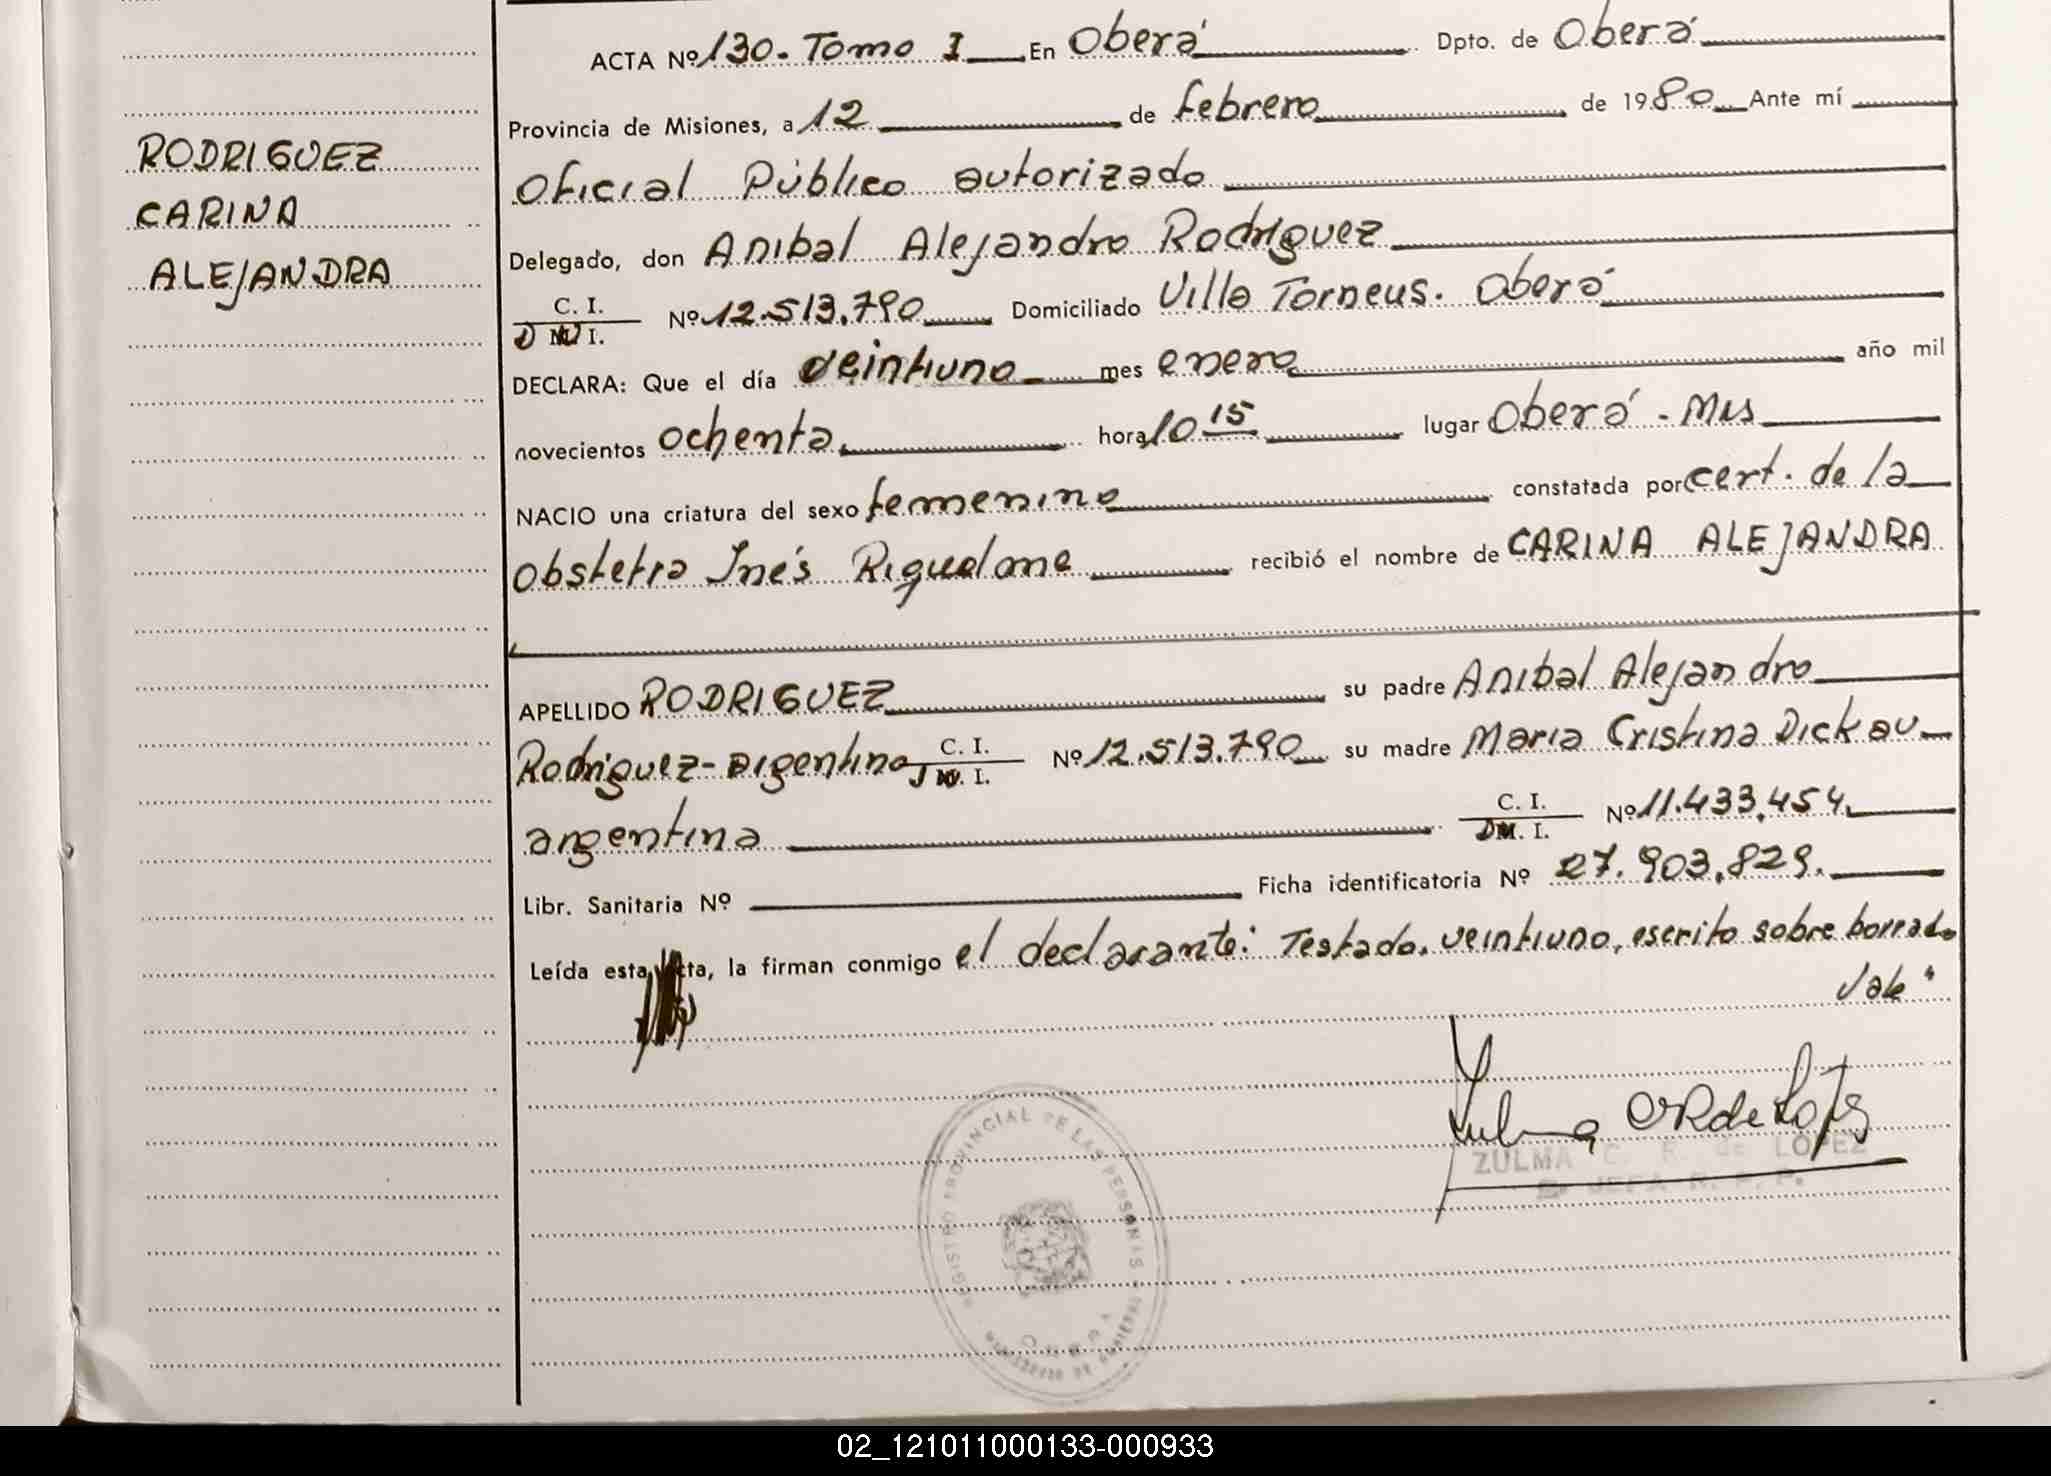 ACTA Nº 130. Tomo I En Oberá Dpto. de Oberá
Provincia de Misiones, a 12 de febrero de 1980 Ante mí
Oficial Público autorizado
Delegado, don Anibal Alejandro Rodriguez
C. I.
D N I. Nº 12.513.790 Domiciliado Villa Torneus. Oberá
DECLARA: Que el día veintiuno mes enero año mil
novecientos ochenta hora 10 15 lugar Oberá - Mis
NACIO una criatura del sexo femenino constatada por cert. de la
Obstetra Inés recibió el nombre de CARINA ALEJANDRA
APELLIDO RODRIGUEZ su padre Anibal Alejandro
Rodriguez - argentino C. I. Nº 12.513.790 su madre Maria Cristina Dickau
argentina C. I. Nº 11.433.454
Libr. Sanitaria Nº Ficha identificatoria Nº 27.903.829.
Leída esta acta, la firman conmigo el declarante: Testado. veintiuno, escrito sobre borrado
Vale"
RODRIGUEZ
CARINA
ALEJANDRA
ZULMA C. R. de LOPEZ
JEFA R. P. P.
REGISTRO PROVINCIAL DE LAS PERSONAS
MINISTERIO DE GOBIERNO
OBERA
02_121011000133-000933